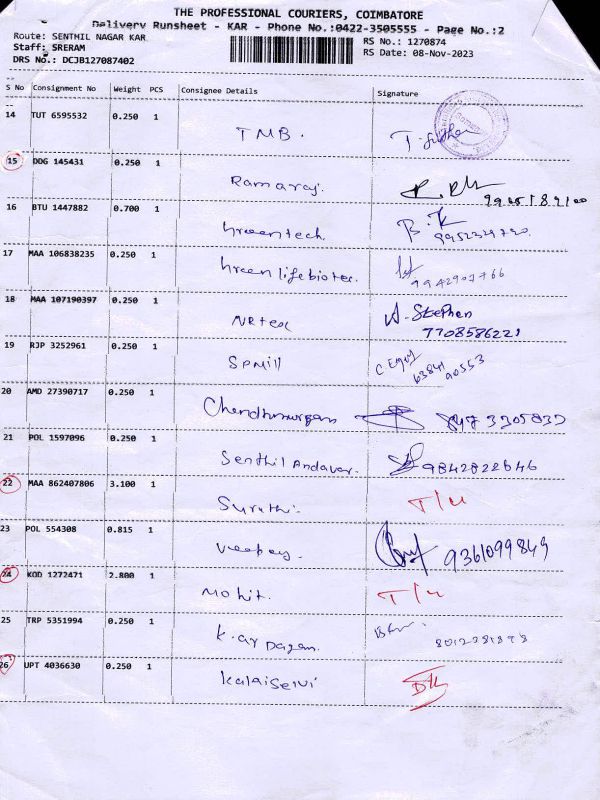 THE PROFESSIONAL COURIERS, COIMBATORE
Delivery Runsheet - KAR - Phone No.:0422-3505555 - Page No.:2
Route: SENTHIL NAGAR KAR
RS No.: 1270874
Staff: SRERAM
RS Date: 08-Nov-2023
DRS No.: DCJB127087402
S No Consignment No Weight PCS Consignee Details Signature
14 TUT 6595532 0.250 1
TMB.
15 DDG 145431 0.250 1
Ramaraj.
16 BTU 1447882 0.700 1
Greentech.
B.K
17 MAA 106838235 0.250 1
Greenlifebiotec.
18 MAA 107190397 0.250 1
NRtex
A. Stephen
7708586221
19 RJP 3252961 0.250 1
SPMill
20 AMD 27390717 0.250 1
Chendhurmurgan
21 POL 1597096 0.250 1
Senthil Andavar.
9842822646
22 MAA 862407806 3.100 1
Suruthi.
23 POL 554308 0.815 1
Veepey.
9361099849
24 KOD 1272471 2.800 1
Mohit.
25 TRP 5351994 0.250 1
26 UPT 4036630 0.250 1
Kalaiselvi